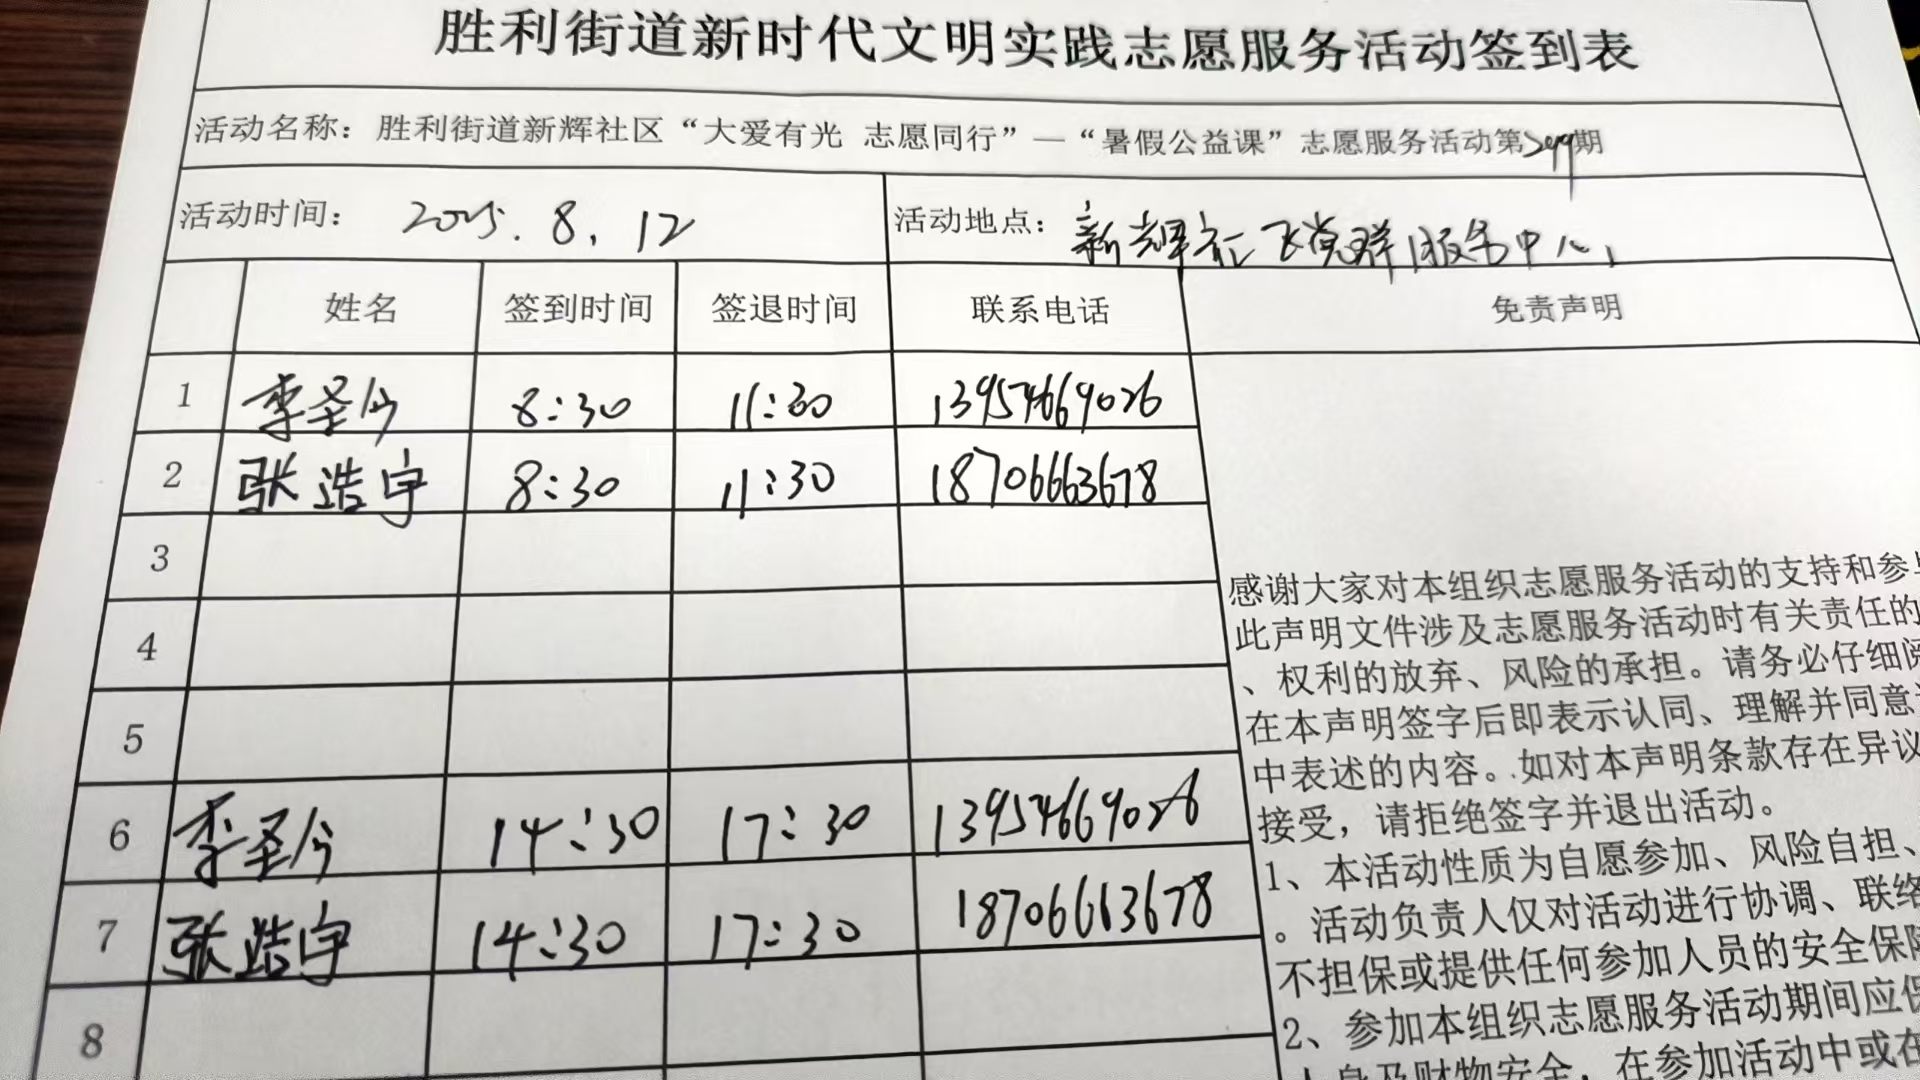 胜利街道新时代文明实践志愿服务活动签到表
活动名称：胜利街道新辉社区“大爱有光 志愿同行”—“暑假公益课”志愿服务活动第299期
活动时间： 2025.8.12 活动地点：新辉社区党群服务中心
姓名 签到时间 签退时间 联系电话 免责声明
1 李圣今 8:30 11:30 13954669026
2 张浩宇 8:30 11:30 18706663678
3
4
5
6 李圣今 14:30 17:30 13954669026
7 张浩宇 14:30 17:30 18706663678
8
感谢大家对本组织志愿服务活动的支持和参与
此声明文件涉及志愿服务活动时有关责任的
、权利的放弃、风险的承担。请务必仔细阅
在本声明签字后即表示认同、理解并同意
中表述的内容。如对本声明条款存在异议
接受，请拒绝签字并退出活动。
1、本活动性质为自愿参加、风险自担、
。活动负责人仅对活动进行协调、联络
不担保或提供任何参加人员的安全保障
2、参加本组织志愿服务活动期间应保
人身及财物安全，在参加活动中或在